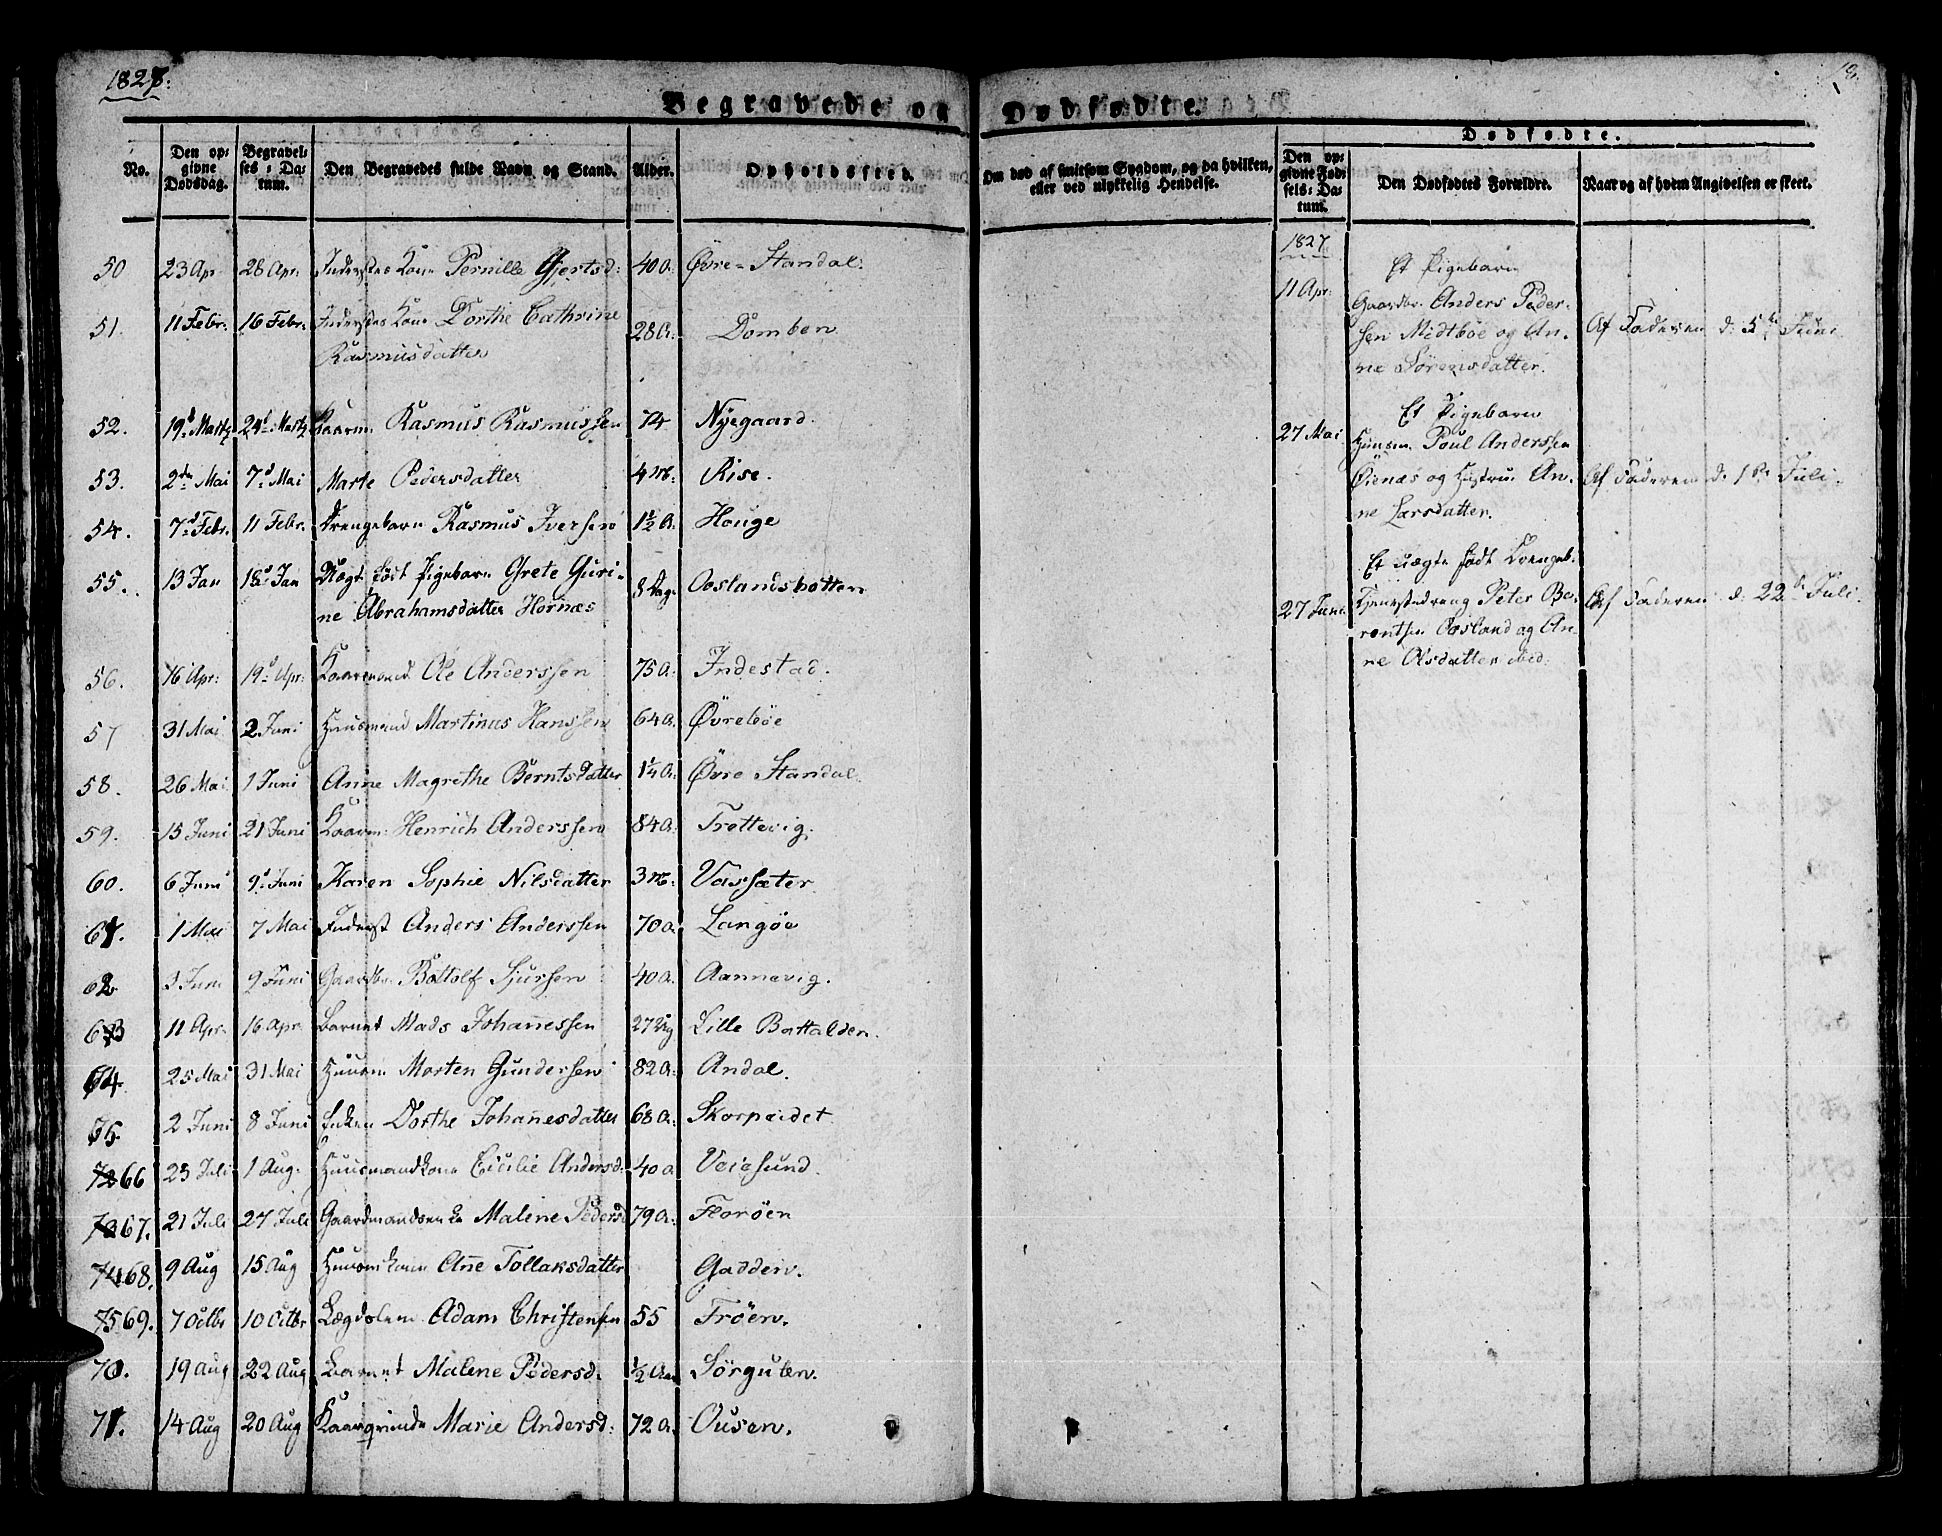 1827.
18.
Begravede og Dødfødte.
No.
Den opgivne Dødsdag.
Begravelses-Datum.
Den Begravedes fulde Navn og Stand.
Alder.
Opholdssted.
Om død af smitsom Sygdom, og da hvilken, eller ved ulykkelig Hendelse.
Dødfødte.
Den opgivne Fødsels-Datum.
Den Dødfødtes Forældre.
Naar og af hvem Angivelsen er skeet.
50 23 Apr 28 Apr: Inderstes Kone Pernille Gjertsd: 40 A: Øvre-Standal.
51. 11 Febr: 16 Febr: Inderstes Kone Dorthe Cathrine
Rasmusdatter 28 A: Domben
52. 19d Martz 24d Martz Kaarm. Rasmus Rasmussen 74 Nyegaard.
53. 2den Mai 7d Mai Marte Pedersdatter 4 M: Rise.
54. 7d Febr. 11 Febr. Drengebarn Rasmus Iversen 1½ A: Houge
55. 13 Jan 18d Jan Uægte født Pigebarn Grete Guri-
ne Abrahamsdatter Hornæs 8 Dage Ooslandsbotten
56. 16 Apr: 19d Apr: Kaarmand Ole Anderssen 75 A: Indestad.
57 31 Mai 2 Juni Huusmand Martinus Hanssen 64 A: Øvrebøe
58. 26 Mai 1 Juni Anne Magrethe Berntsdatter 1¼ A: Øvre Standal.
59. 15 Juni 21 Juni Kaarm: Henrich Anderssen 84 A: Trottevig.
60. 6 Juni 9d Juni Karen Sophie Nilsdatter 3 M: Vassæter.
61. 1 Mai 7 Mai Inderst Anders Anderssen 70 A: Langøe
62 3 Juni 9 Juni Gaardbr. Bottolf Sjurssen 40 A: Aannevig.
63 11 Apr. 16 Apr. Barnet Mads Johannessen 27 Lille Battalden.
64 25 Mai 31 Mai Huusm Morten Gunderssen 82 A: Andal.
65 2 Juni 8 Juni Enken Dorthe Johannesdatter 68 A: Skorpeidet
66 23 Juli 1 Aug. Huusmandkone Cicilie Andersd: 40 A Veiesund.
67. 21 Juli 27 Juli Gaardmandsenke Malene Pedersd 79 A: Florøen
68. 9 Aug 15 Aug Huusmkone Ane Tollaksdatter Gadden.
69. 7 Octbr 10 Octbr Lægdslem Adam Christensen 55 Frøen.
70. 19 Aug 22 Aug Barnet Malene Pedersd. ½ Aar Sørguten.
71. 14 Aug 20 Aug Kaarqvinde Marie Andersd: 72 A: Ousen.
1827
11 Apr:
Et Pigebarn
Gaardbr. Anders Peder-
sen Midtbøe og An-
ne Sørensdatter.
Af Faderen d: 5te Juni
27 Mai
Et Pigebarn
Huusm. Poul Anderssen
Øienæs og Hustrue An-
ne Larsdatter.
Af Faderen d: 1ste Juli.
27 Juni
Et uægte født Drengeb.
Tjenestedreng Peter Be-
rentsen Oosland og An-
ne Olsdatter ibid:
Af Faderen d: 22de Juli.